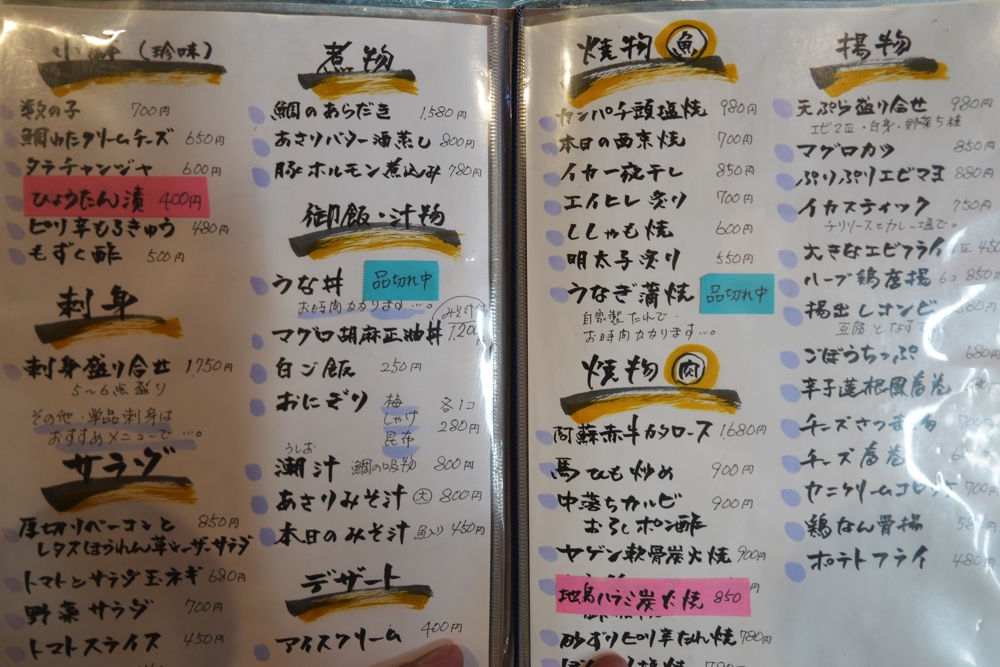 小鉢（珍味）
数の子 700円
鯛わたクリームチーズ 650円
タラチャンジャ 600円
ひょうたん漬 400円
ピリ辛もろきゅう 480円
もずく酢 500円
刺身
刺身盛り合せ 1,750円
5〜6点盛り
その他・単品刺身は
おすすめメニューで…。
サラダ
厚切りベーコンと 850円
レタスほうれん草シーザーサラダ
トマトとサラダ玉ネギ 680円
野菜サラダ 700円
トマトスライス 450円
煮物
鯛のあらだき 1,580円
あさりバター酒蒸し 800円
豚ホルモン煮込み 780円
御飯・汁物
うな丼 品切れ中
お時間かかります…。
みそ汁付
マグロ胡麻正油丼 1,200
白ご飯 250円
おにぎり 梅 しゃけ 昆布 各1コ 280円
うしお
潮汁 鯛の吸物 800円
あさりみそ汁 大 800円
本日のみそ汁 魚入り 450円
デザート
アイスクリーム 400円
焼物 魚
カンパチ頭塩焼 980円
本日の西京焼 700円
イカ一夜干し 850円
エイヒレ炙り 700円
ししゃも焼 600円
明太子炙り 550円
うなぎ蒲焼 品切れ中
自家製たれで
お時間かかります…。
焼物 肉
阿蘇赤牛カタロース 1,680円
馬ひも炒め 900円
中落ちカルビ 900円
おろしポン酢
ヤゲン軟骨炭火焼 900円
地鳥ハラミ炭火焼 850
砂ずりピリ辛たれ焼 780円
揚物
天ぷら盛り合せ 980円
エビ2匹・白身・野菜5種
マグロカツ 850円
ぷりぷりエビマヨ 880円
イカスティック 750円
チリソースとカレー塩で。
大きなエビフライ 1匹 450
ハーブ鶏唐揚 6コ 850円
揚出しコンビ 880円
豆腐となすで
ごぼうちっぷ 680円
辛子蓮根風春巻
チーズさつま揚
チーズ春巻
カニクリームコロッケ 700円
鶏なん骨揚
ポテトフライ 480円